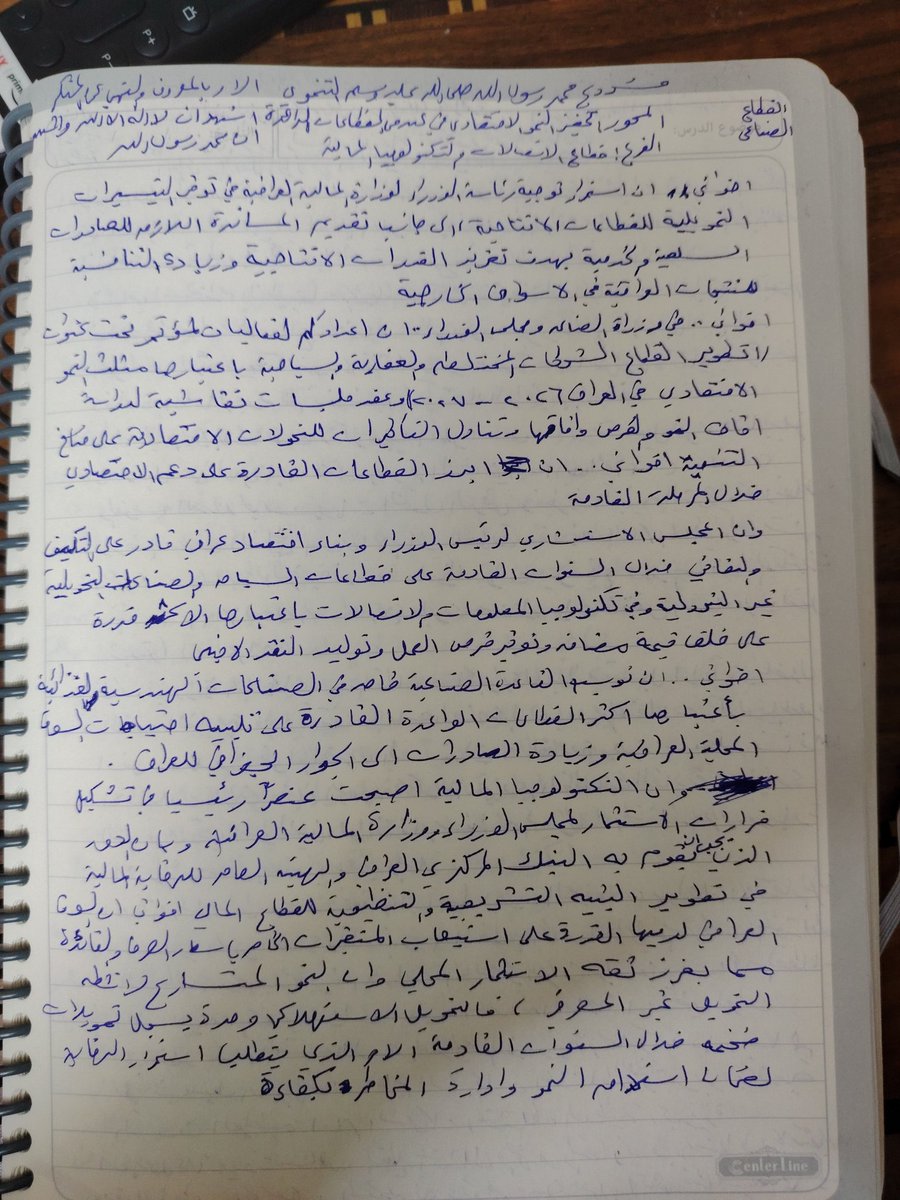 مشروع محمد رسول الله صلى الله عليه وسلم التنموي الامر بالمعروف والنهي عن المنكر
القطاع الصناعي
المحور: تحفيز النمو الاقتصادي في القطاعات الواعدة
الفرع: قطاع الاتصالات والتكنولوجيا المالية
ان محمد رسول الله
اخواني .. ان استمرار توجية رئاسة الوزراء لوزارة المالية العراقية في توفير التيسيرات
التمويلية للقطاعات الانتاجية، الى جانب تقديم المساندة اللازمة للصادرات
السلعية والخدمية بهدف تعزيز القدرات الانتاجية وزيادة التنافسية
للمنتجات العراقية في الاسواق الخارجية
اخواني .. في وزراة الصناعه ومجلس الوزراء .. ان اعدادكم لفعاليات المؤتمر تحت عنوان
(تطوير القطاع الشركات المختلطه والعقارية والسياحية باعتبارها مثلث النمو
الاقتصادي في العراق ٢٠٢٦ - ٢٠٢٧) وعقد جلسات نقاشية لدراسة
افاق النمو والفرص وافاقها وتناول التأثيرات للتحولات الاقتصادية على مناخ
التنمية اخواني .. ان ابرز القطاعات القادرة على دعم الاقتصادي
خلال المرحلة القادمة
وان المجلس الاستشاري لرئيس الوزراء وبناء اقتصاد عراقي قادر على التكيف
والتعافي خلال السنوات القادمة على قطاعات السياحه والصناعات التحويلية
غير البترولية وفي تكنولوجيا المعلومات والاتصالات باعتبارها الاكثر قدرة
على خلق قيمة مضافه وتوفير فرص العمل وتوليد النقد الاجنبي
اخواني .. ان توسيع القاعدة الصناعية خاصه في الصناعات الهندسية والغذائية
بأعتبارها اكثر القطاعات الواعدة القادرة على تلبيه احتياجات السوق
المحلية العراقية وزيادة الصادرات الى الجوار الجغرافي للعراق .
وان التكنولوجيا المالية اصبحت عنصراً رئيسيا في تشكيل
قرارات الاستثمار لمجلس الوزراء ووزارة المالية العراقية وبيان الدور
الذي يجب ان يقوم به البنك المركزي العراقي والهيئه العامه للرقابة المالية
في تطوير البنيه التشريعية والتنظيمية للقطاع المالي اخواني ان السوق
العراقي لديها القدرة على استيعاب المتغيرات الخاصه باسعار الصرف والفائدة
مما يعزز ثقه الاستثمار المحلي وان النمو المتسارع لانشطه
التمويل غير المصرفي، فالتمويل الاستهلاكي وحدة يسجل تمويلات
ضخمه خلال السنوات القادمة الامر الذي يتطلب استمرار الرقابة
لضمان استدامه النمو وادارة المخاطر بكفاءة
Centerline